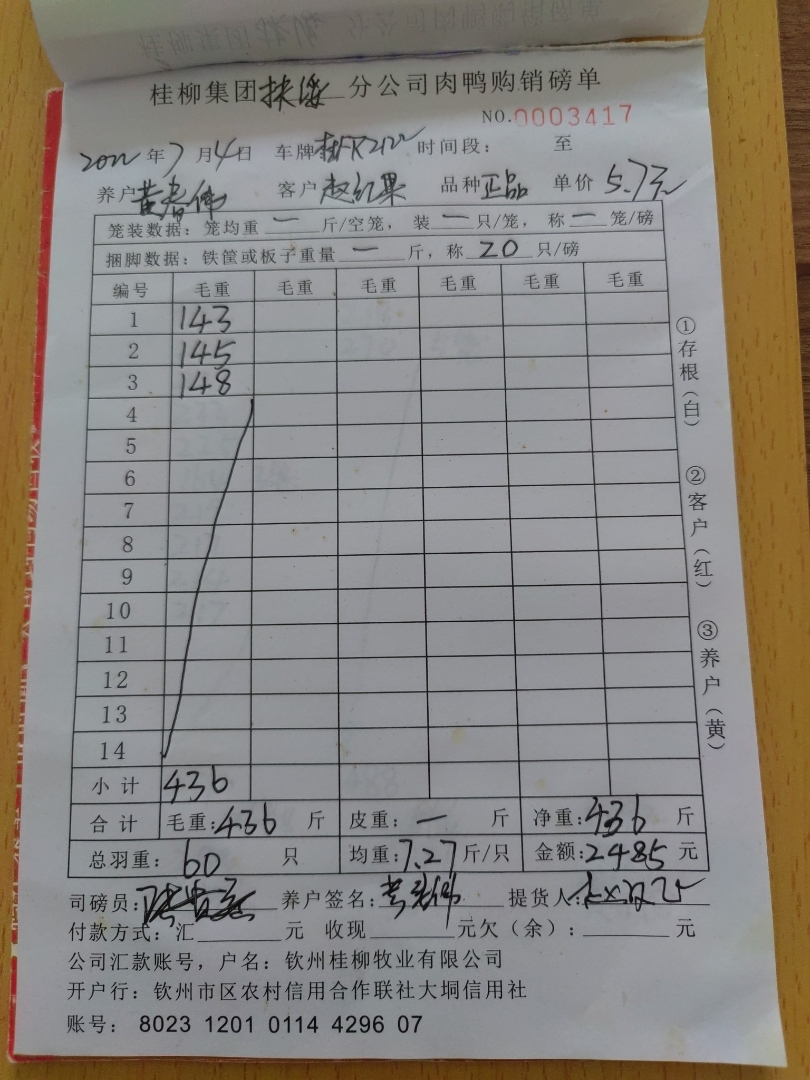 桂柳集团扶绥分公司肉鸭购销磅单
NO.0003417
2022年7月4日 车牌 时间段： 至
养户黄春伟 客户赵红果 品种正品 单价5.7元
笼装数据：笼均重一斤/空笼，装一只/笼，称一笼/磅
捆脚数据：铁筐或板子重量一斤，称20只/磅
编号 毛重 毛重 毛重 毛重 毛重 毛重
1 143
2 145
3 148
4
5
6
7
8
9
10
11
12
13
14
小计 436
合计 毛重：436斤 皮重：一斤 净重：436斤
总羽重：60只 均重：7.27斤/只 金额：2485元
司磅员： 养户签名： 提货人：
付款方式：汇 元 收现 元欠（余）： 元
公司汇款账号，户名：钦州桂柳牧业有限公司
开户行：钦州市区农村信用合作联社大垌信用社
账号： 8023 1201 0114 4296 07
①存根（白）
②客户（红）
③养户（黄）